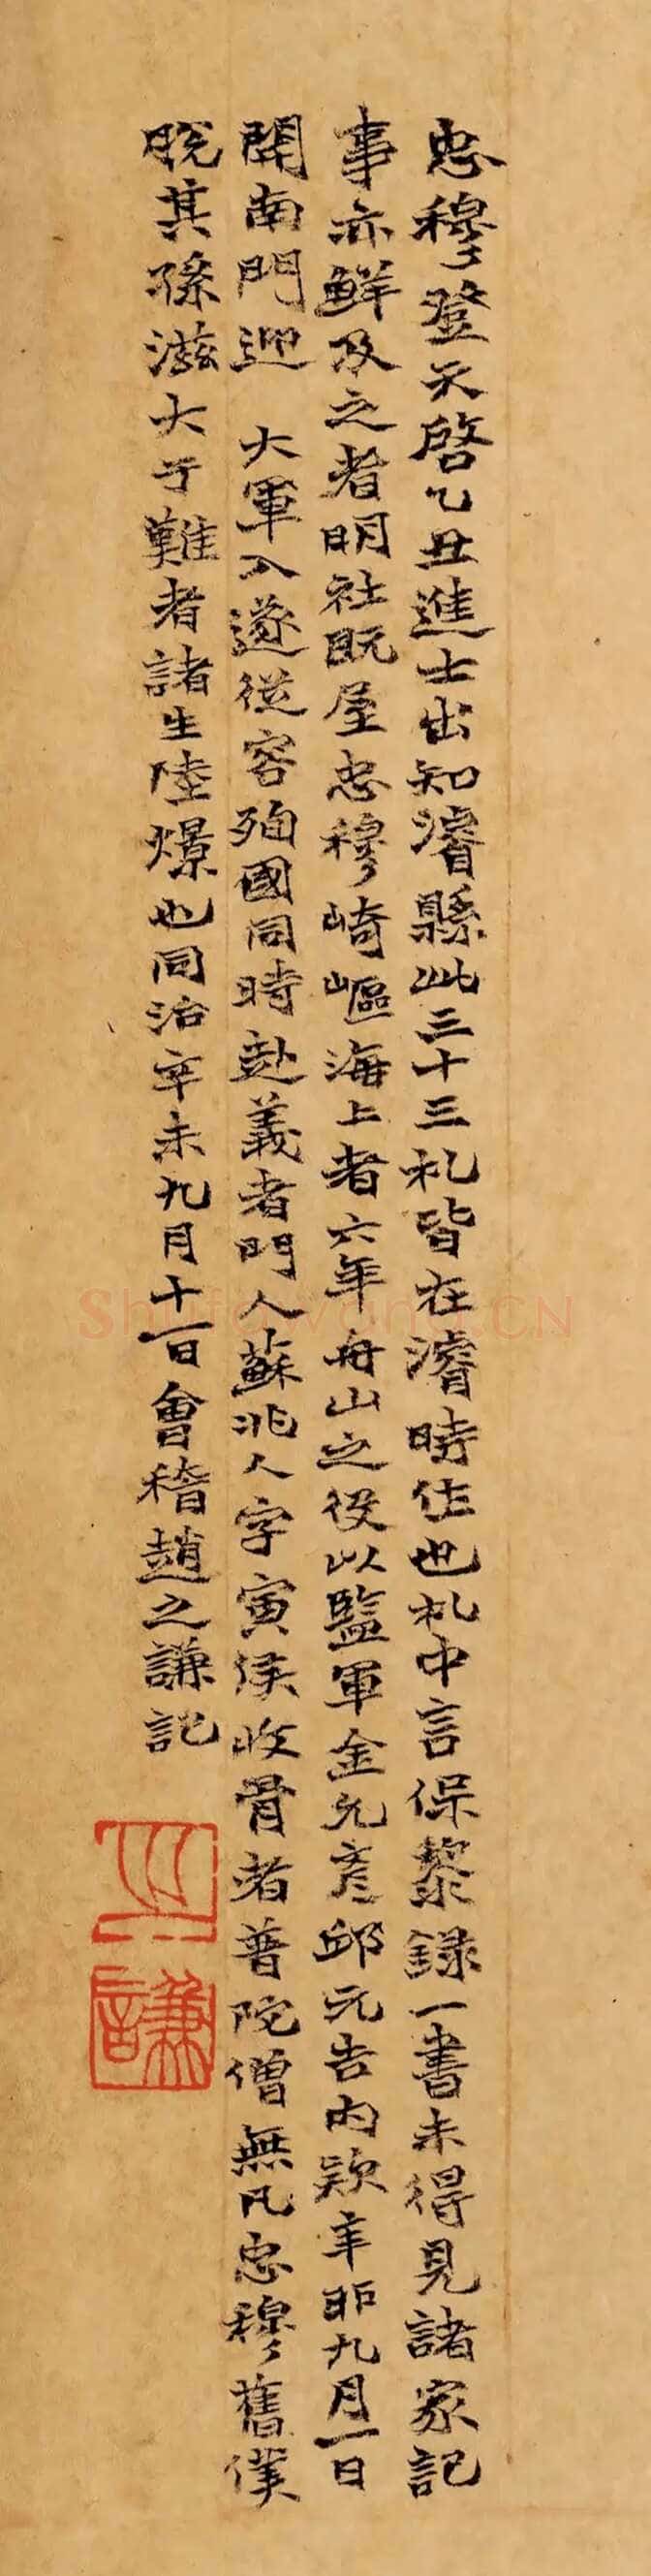 忠穆登天啓乙丑進士出知濬縣此三十三札皆在濬時作也札中言保黎録一書未得見諸家記
事亦鮮及之者明社既屋忠穆崎嶇海上者六年舟山之役以監軍金允彥邱元吉内款辛卯九月一日
開南門迎　大軍入遂從容殉國同時赴義者門人蘇兆人字寅侯收骨者普陀僧無凡忠穆舊僕
脱其孫滋大于難者諸生陸㬌也同治辛未九月十一日會稽趙之謙記
之謙
ShufaWang.CN